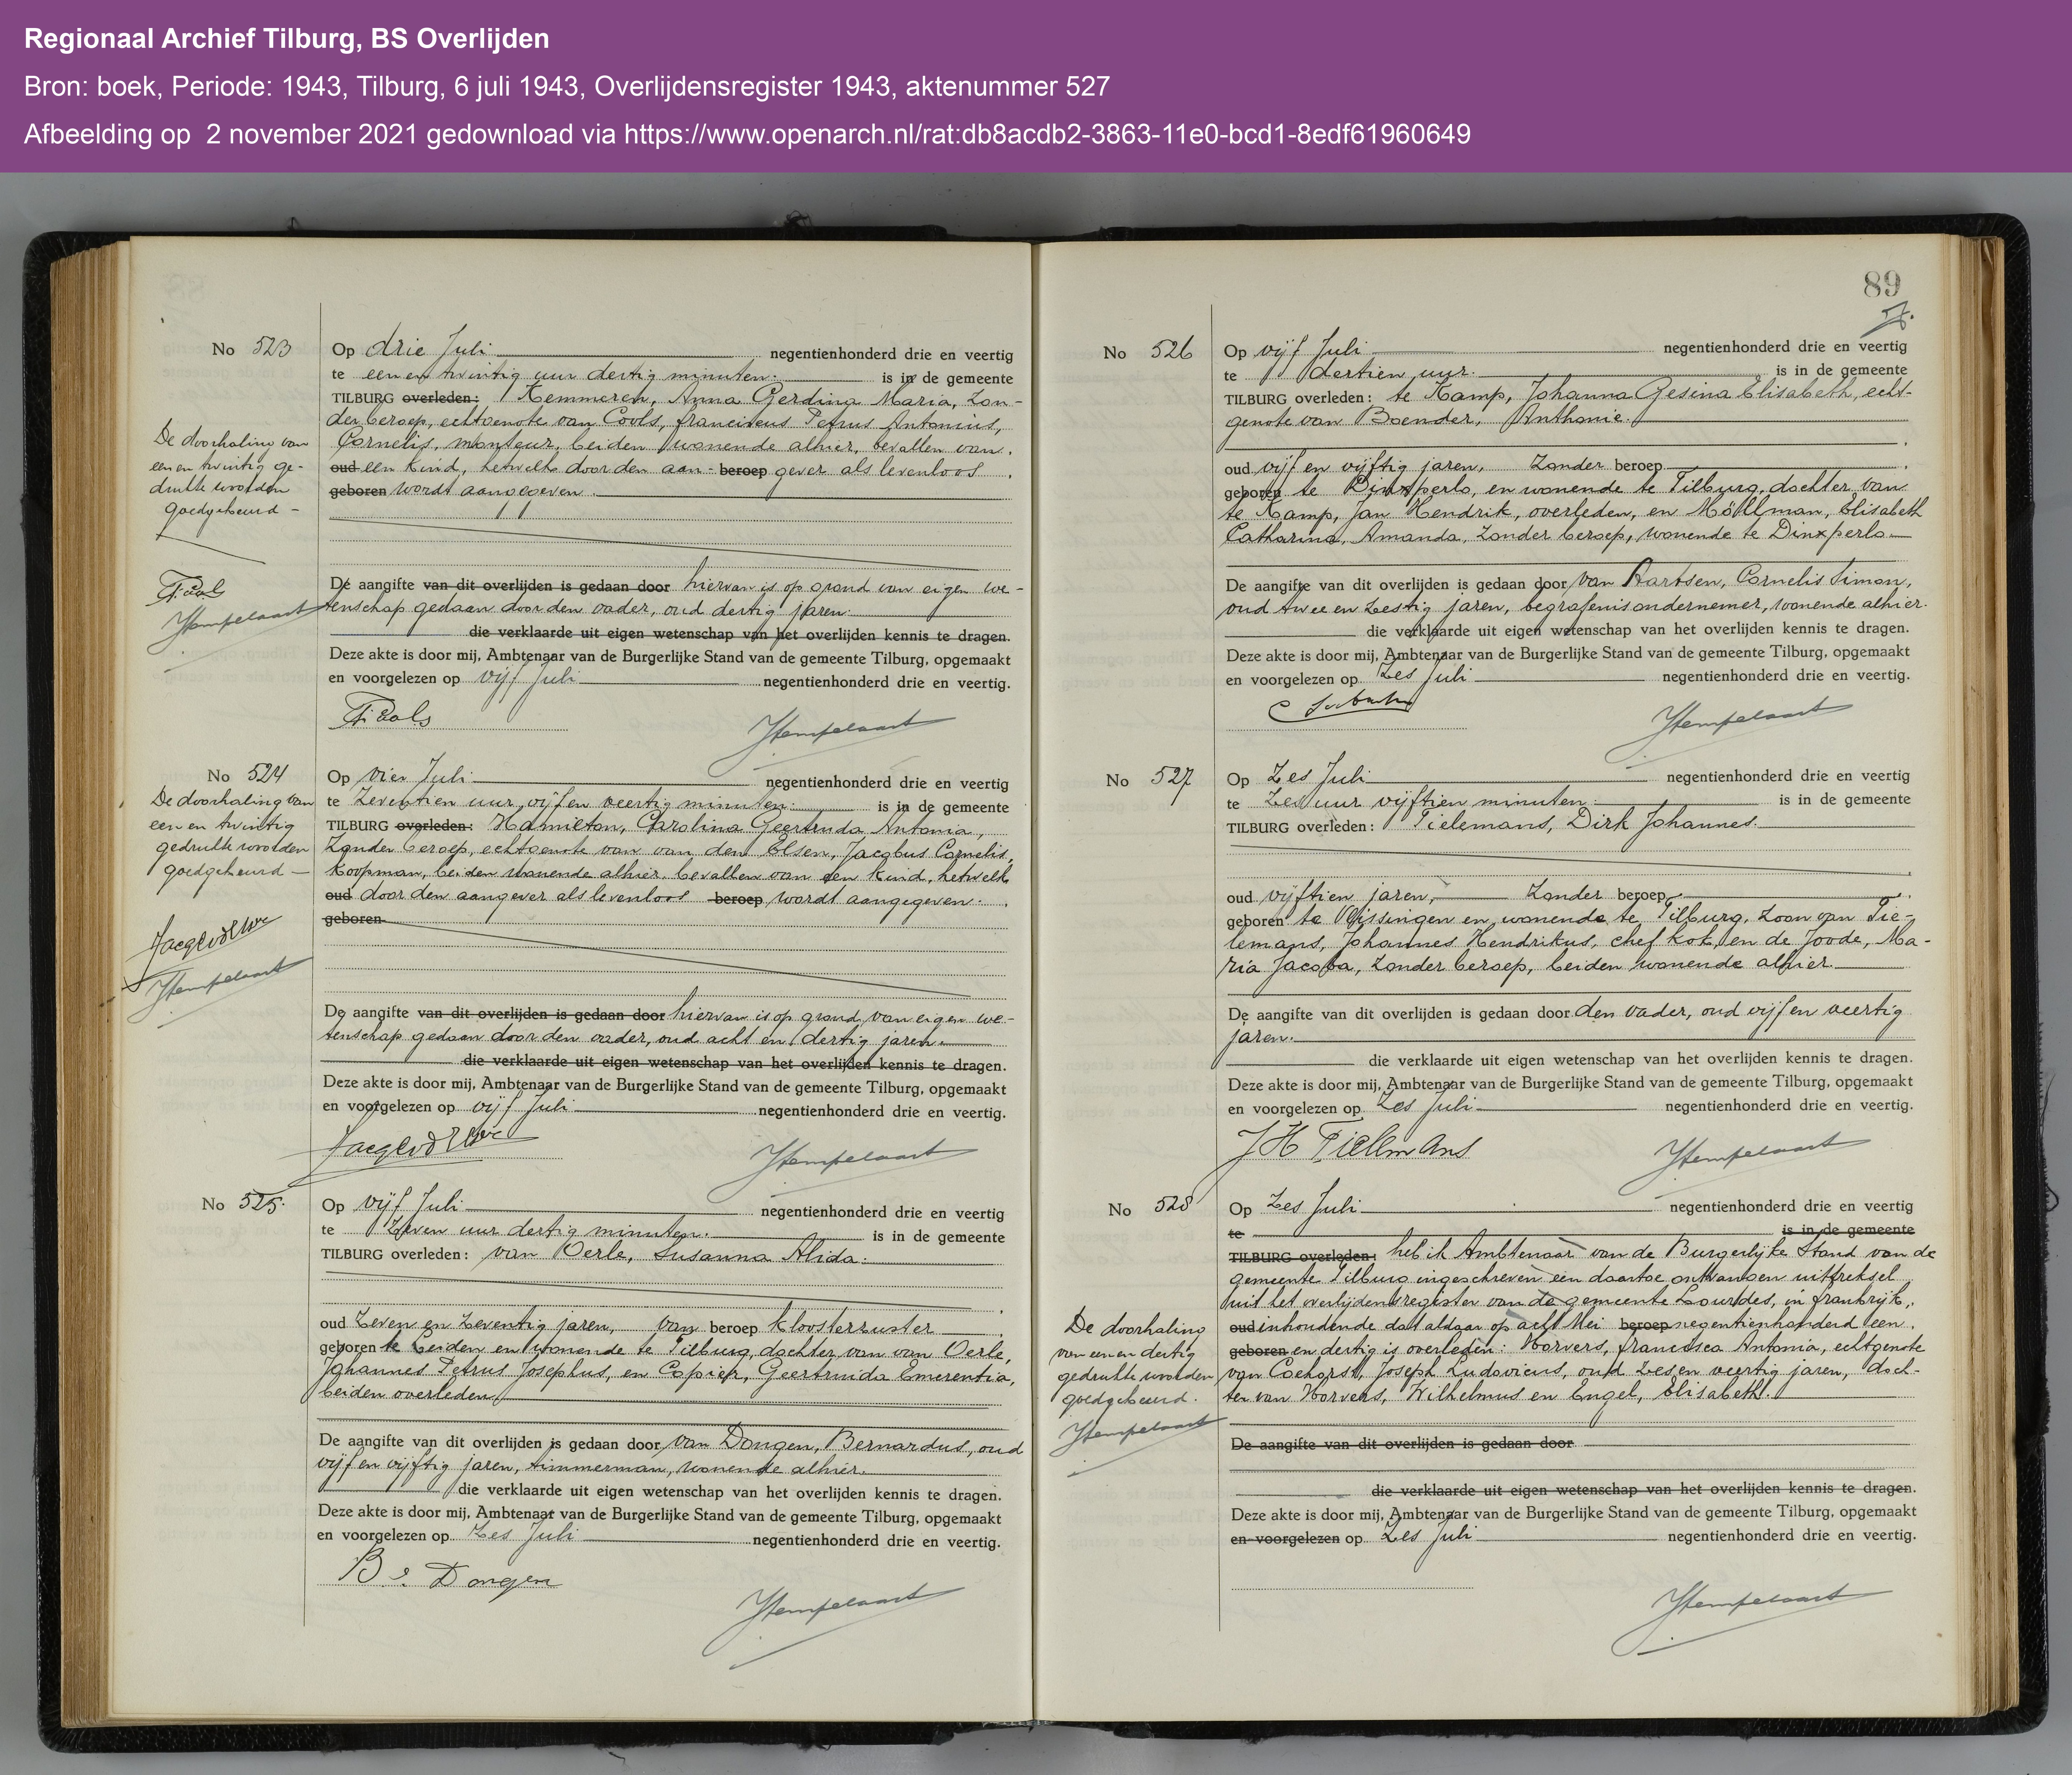 Regionaal Archief Tilburg, BS Overlijden
Bron: boek, Periode: 1943, Tilburg, 6 juli 1943, Overlijdensregister 1943, aktenummer 527
Afbeelding op 2 november 2021 gedownload via https://www.openarch.nl/rat:db8acdb2-3863-11e0-bcd1-8edf61960649
No 523
Op drie Juli negentienhonderd drie en veertig
te een en twintig uur dertig minuten. is in de gemeente
TILBURG overleden: Kemmeren, Anna Gerdina Maria, zon-
der beroep, echtgenote van Cools, franciscus Petrus Antonius,
Cornelis, monteur, beiden wonende alhier, bevallen van
oud een kind, hetwelk door den aan- beroep gever als levenloos
geboren wordt aangegeven.
De doorhaling van
een en twintig ge-
drukte woorden
goedgekeurd -
De aangifte van dit overlijden is gedaan door hiervan is op grond van eigen we-
tenschap gedaan door den vader, oud dertig jaren.
die verklaarde uit eigen wetenschap van het overlijden kennis te dragen.
Deze akte is door mij, Ambtenaar van de Burgerlijke Stand van de gemeente Tilburg, opgemaakt
en voorgelezen op vijf Juli negentienhonderd drie en veertig.
No 524
Op vier Juli negentienhonderd drie en veertig
te zeventien uur vijf en veertig minuten. is in de gemeente
TILBURG overleden: Hamilton, Carolina Geertruda Antonia,
zonder beroep, echtgenote van van den Elsen, Jacobus Cornelis,
koopman, beiden wonende alhier, bevallen van een kind, hetwelk
oud door den aangever als levenloos beroep wordt aangegeven.
geboren
De doorhaling van
een en twintig
gedrukte woorden
goedgekeurd -
De aangifte van dit overlijden is gedaan door hiervan is op grond van eigen we-
tenschap gedaan door den vader, oud acht en dertig jaren.
die verklaarde uit eigen wetenschap van het overlijden kennis te dragen.
Deze akte is door mij, Ambtenaar van de Burgerlijke Stand van de gemeente Tilburg, opgemaakt
en voorgelezen op vijf Juli negentienhonderd drie en veertig.
No 525.
Op vijf Juli negentienhonderd drie en veertig
te zeven uur dertig minuten. is in de gemeente
TILBURG overleden: van Oerle, Susanna Alida.
oud zeven en zeventig jaren, van beroep kloosterzuster
geboren te Leiden en wonende te Tilburg, dochter van van Oerle,
Johannes Petrus Josephus, en Copier, Geertruida Emerentia,
beiden overleden.
De aangifte van dit overlijden is gedaan door van Dongen, Bernardus, oud
vijf en vijftig jaren, timmerman, wonende alhier.
die verklaarde uit eigen wetenschap van het overlijden kennis te dragen.
Deze akte is door mij, Ambtenaar van de Burgerlijke Stand van de gemeente Tilburg, opgemaakt
en voorgelezen op zes Juli negentienhonderd drie en veertig.
B v Dongen
89
No 526
Op vijf Juli negentienhonderd drie en veertig
te dertien uur. is in de gemeente
TILBURG overleden: te Kamp, Johanna Gesina Elisabeth, echt-
genote van Boender, Anthonie.
oud vijf en vijftig jaren, zonder beroep
geboren te Dinxperlo, en wonende te Tilburg, dochter van
te Kamp, Jan Hendrik, overleden, en Möllman, Elisabeth
Catharina, Amanda, zonder beroep, wonende te Dinxperlo
De aangifte van dit overlijden is gedaan door van Aartsen, Cornelis Simon,
oud twee en zestig jaren, begrafenisondernemer, wonende alhier.
die verklaarde uit eigen wetenschap van het overlijden kennis te dragen.
Deze akte is door mij, Ambtenaar van de Burgerlijke Stand van de gemeente Tilburg, opgemaakt
en voorgelezen op zes Juli negentienhonderd drie en veertig.
No 527
Op zes Juli negentienhonderd drie en veertig
te zes uur vijftien minuten. is in de gemeente
TILBURG overleden: Tielemans, Dirk Johannes.
oud vijftien jaren, zonder beroep
geboren te Vlissingen en wonende te Tilburg, zoon van Tie-
lemans, Johannes Hendrikus, chef kok, en de Joode, Ma-
ria Jacoba, zonder beroep, beiden wonende alhier.
De aangifte van dit overlijden is gedaan door den vader, oud vijf en veertig
jaren.
die verklaarde uit eigen wetenschap van het overlijden kennis te dragen.
Deze akte is door mij, Ambtenaar van de Burgerlijke Stand van de gemeente Tilburg, opgemaakt
en voorgelezen op zes Juli negentienhonderd drie en veertig.
JH Tielemans
No 528
Op zes Juli negentienhonderd drie en veertig
te is in de gemeente
TILBURG overleden: heb ik Ambtenaar van de Burgerlijke Stand van de
gemeente Tilburg ingeschreven een daartoe ontvangen uittreksel
uit het overlijdensregister van de gemeente Lourdes, in frankrijk,
oud inhoudende dat aldaar op acht Mei beroep negentienhonderd een
geboren en dertig is overleden: Vorvers, francisca Antonia, echtgenote
van Coehorst, Joseph Ludovicus, oud zes en veertig jaren, doch-
ter van Vorvers, Wilhelmus en Engel, Elisabeth.
De doorhaling
van een en dertig
gedrukte woorden
goedgekeurd.
De aangifte van dit overlijden is gedaan door
die verklaarde uit eigen wetenschap van het overlijden kennis te dragen.
Deze akte is door mij, Ambtenaar van de Burgerlijke Stand van de gemeente Tilburg, opgemaakt
en voorgelezen op zes Juli negentienhonderd drie en veertig.